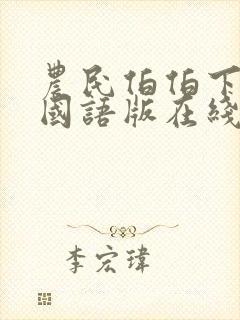 農民伯伯下
國語版在綫
李宏瑋